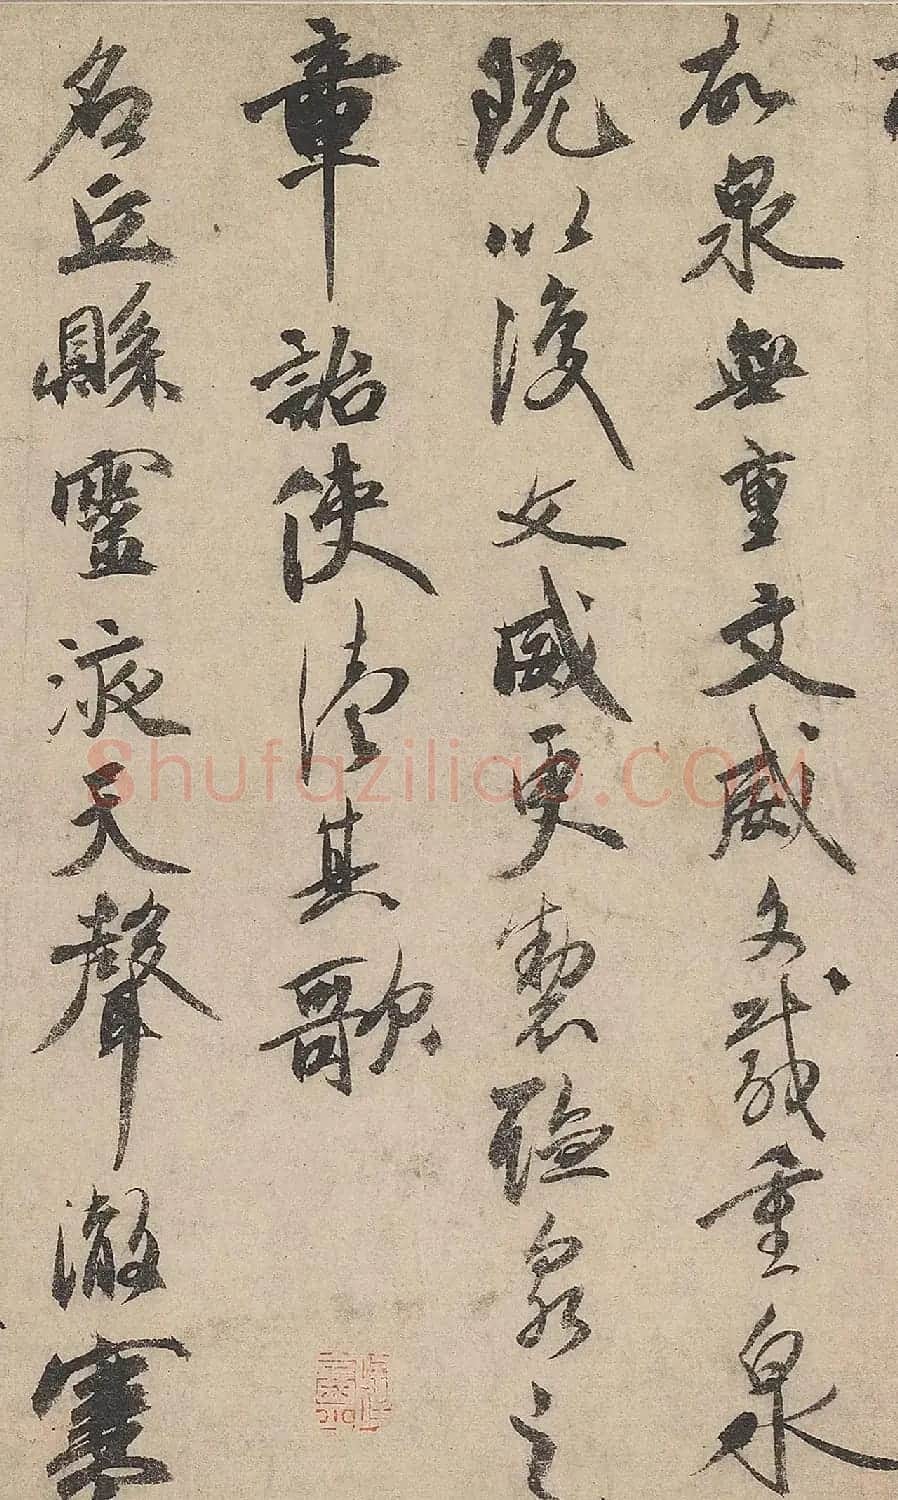 故泉無重文威文載重泉
既以後文威更製泉之
章詔使續其歌
名丘縣靈液天聲
Shufaziliao.COM